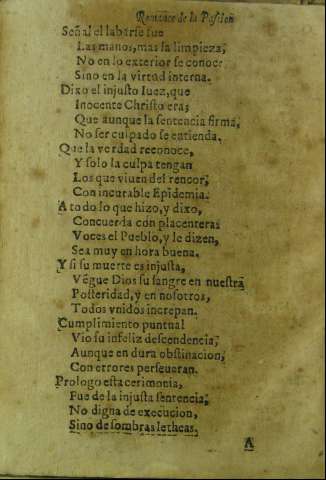 Romance de la Passion
Señal el labarse fue
Las manos, mas la limpieza,
No en lo exterior se conoce
Sino en la virtud interna.
Dixo el injusto Iuez, que
Inocente Christo era;
Que aunque la sentencia firma,
No ser culpado se entienda.
Que la verdad reconoce,
Y solo la culpa tengan
Los que viuen del rencor,
Con incurable Epidemia.
A todo lo que hizo, y dixo,
Concuerda con placenteras
Voces el Pueblo, y le dizen,
Sea muy en hora buena.
Y si su muerte es injusta,
Vẽgue Dios su sangre en nuestra
Posteridad, y en nosotros,
Todos vnidos increpan.
Cumplimiento puntual
Vio su infeliz descendencia,
Aunque en dura obstinacion,
Con errores perseueran.
Prologo esta cerimonia,
Fue de la injusta sentencia,
No digna de execucion,
Sino de sombras letheas.
A